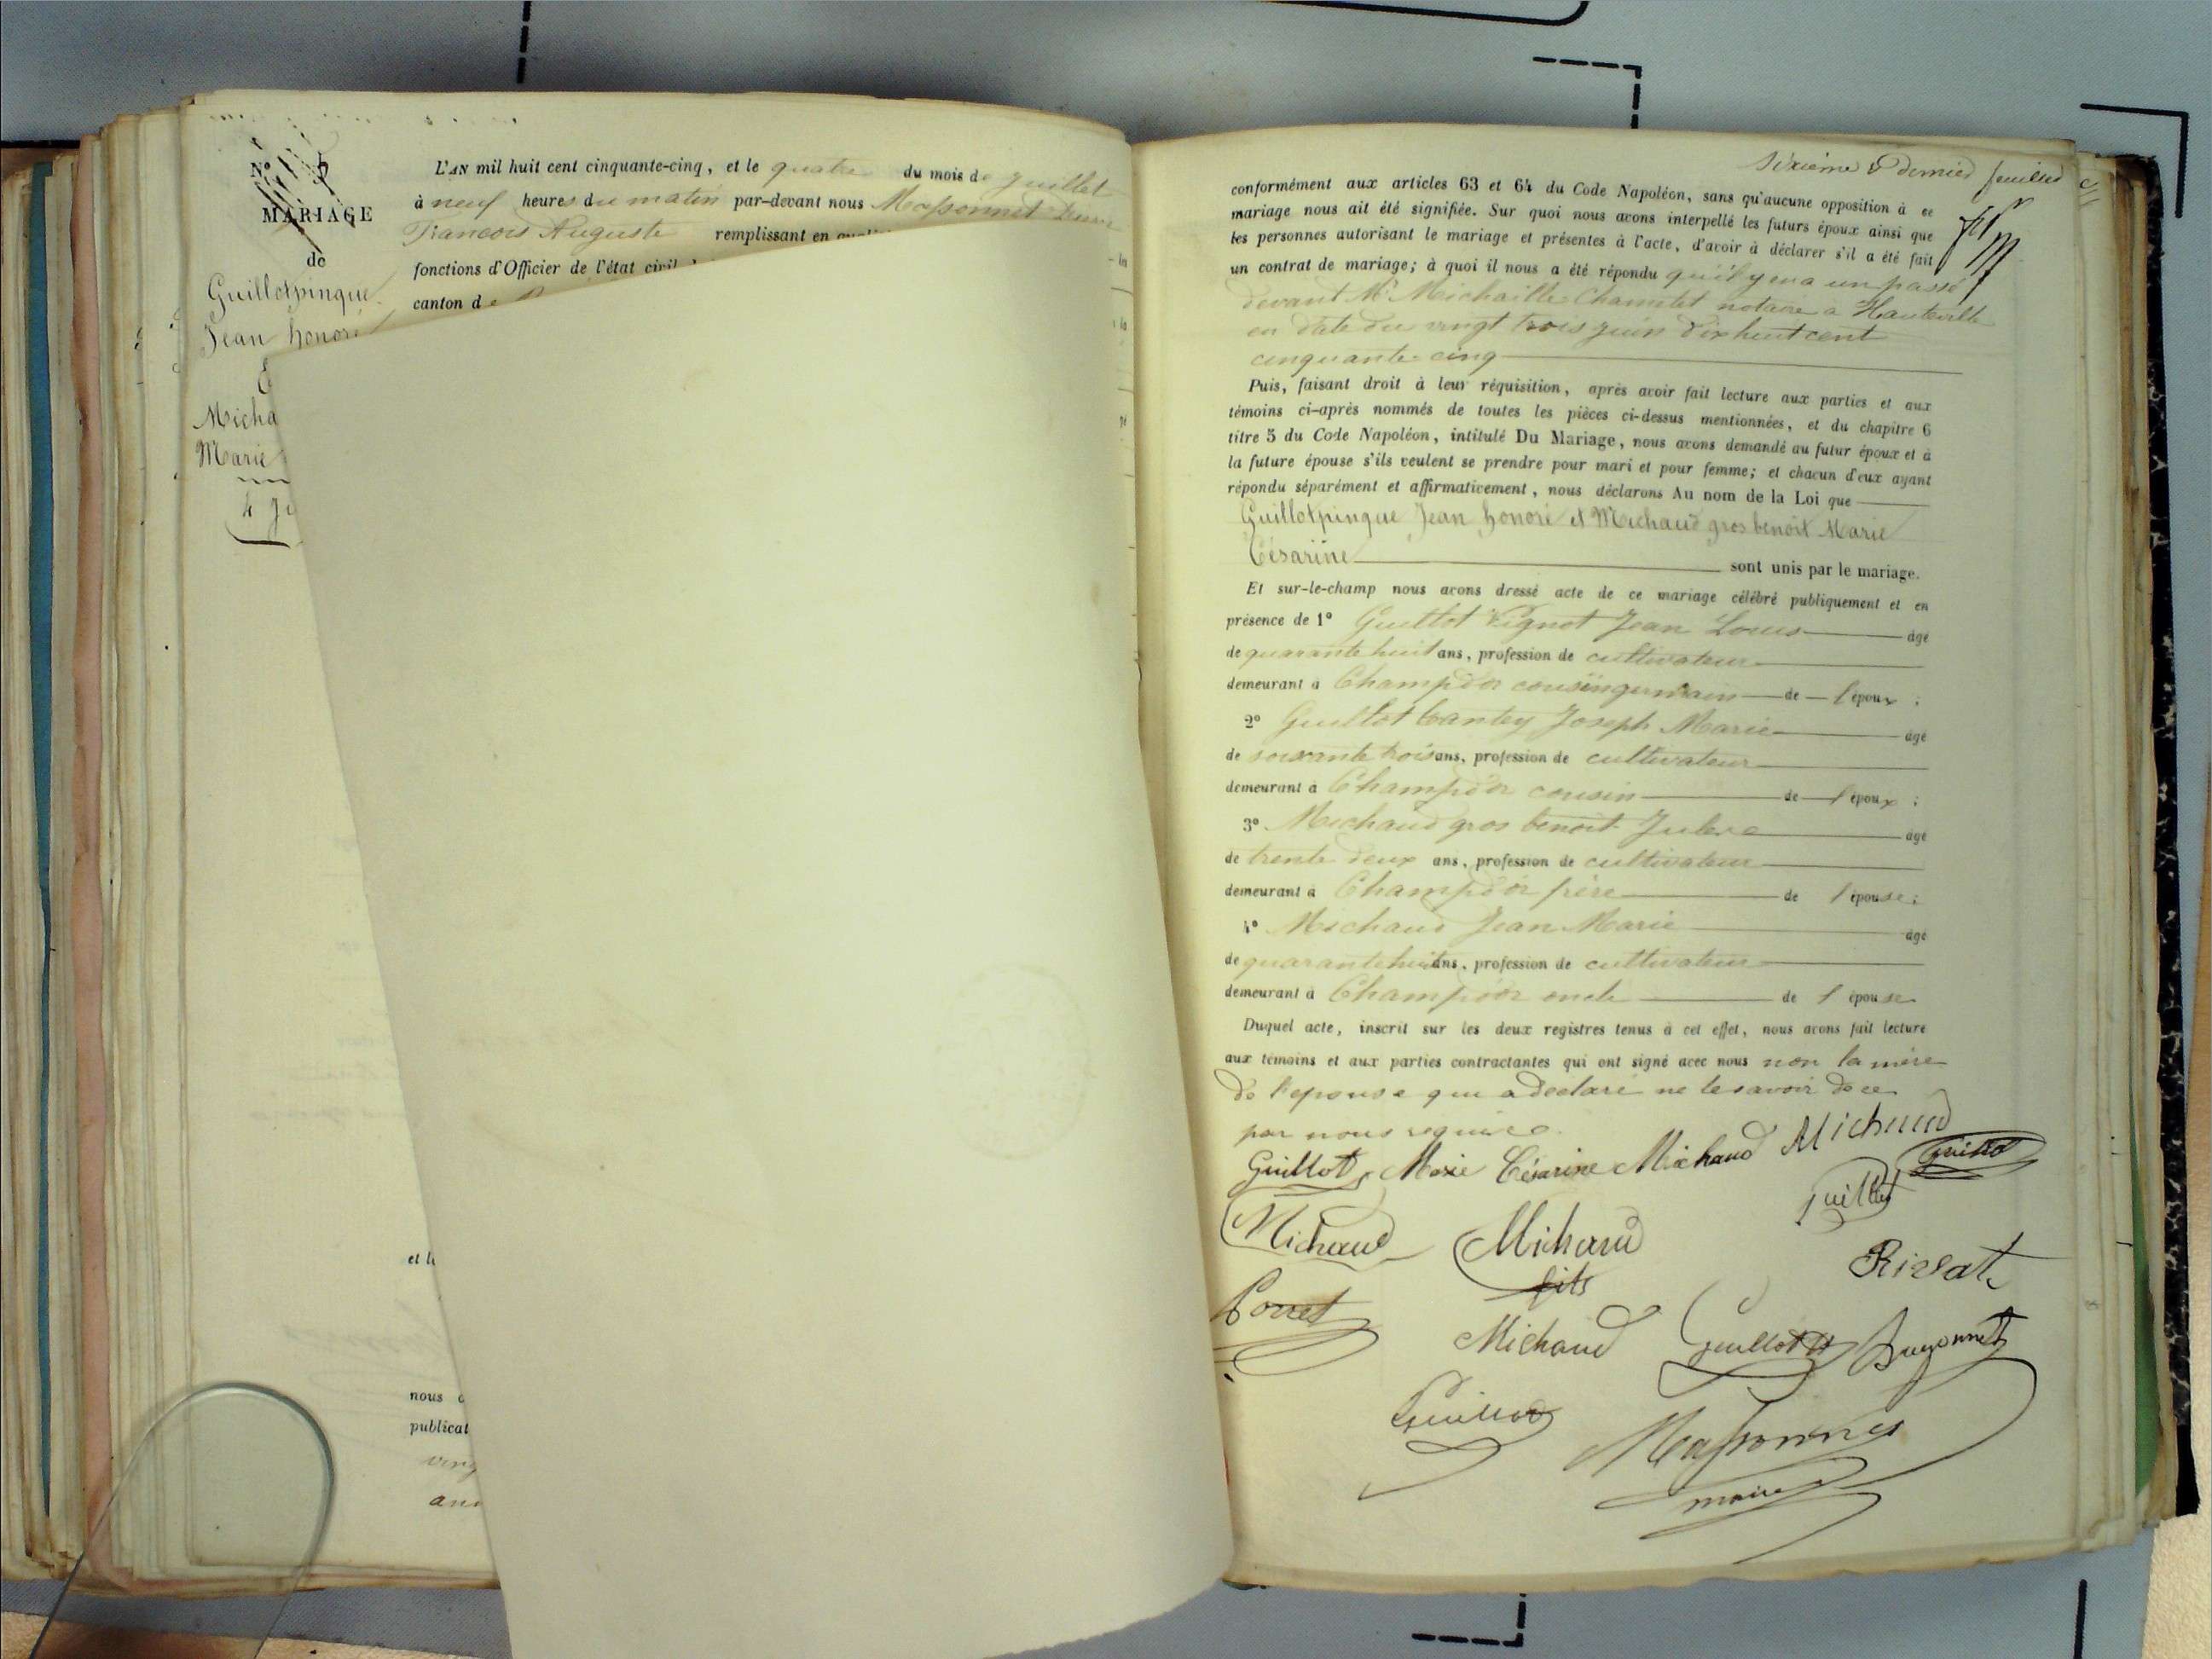 N° 5
MARIAGE
de
Guillotpinque
Jean honoré
Micha
Marie
4 Ju
L'AN mil huit cent cinquante-cinq, et le quatre du mois de Juillet
à neuf heures du matin par-devant nous Massonnet
Francois Auguste remplissant en
fonctions d'Officier de l'état civil
canton de
et l
nous
publicat
ving
ann
Sixième & dernied feuilled
conformément aux articles 63 et 64 du Code Napoléon, sans qu'aucune opposition à ce
mariage nous ait été signifiée. Sur quoi nous avons interpellé les futurs époux ainsi que
les personnes autorisant le mariage et présentes à l'acte, d'avoir à déclarer s'il a été fait
un contrat de mariage; à quoi il nous a été répondu qu'il y en a un passé
devant Me Michaille Chamelet notaire a Hauteville
en date du vingt trois juin dix huit cent
cinquante cinq
Puis, faisant droit à leur réquisition, après avoir fait lecture aux parties et aux
témoins ci-après nommés de toutes les pièces ci-dessus mentionnées, et du chapitre 6
titre 5 du Code Napoléon, intitulé Du Mariage, nous avons demandé au futur époux et à
la future épouse s'ils veulent se prendre pour mari et pour femme; et chacun d'eux ayant
répondu séparément et affirmativement, nous déclarons Au nom de la Loi que
Guillotpinque Jean honoré et Michaud gros benoit Marie
Césarine sont unis par le mariage.
Et sur-le-champ nous avons dressé acte de ce mariage célébré publiquement et en
présence de 1° Guillot Pignot Jean Louis âgé
de quarante huit ans, profession de cultivateur
demeurant à Champdor cousin germain de l'époux;
2° Guillot Cantey Joseph Marie âgé
de soixante trois ans, profession de cultivateur
demeurant à Champdor cousin de l'époux;
3° Michaud gros benoit Jules âgé
de trente deux ans, profession de cultivateur
demeurant à Champdor frère de l'épouse;
4° Michaud Jean Marie âgé
de quarante huit ans, profession de cultivateur
demeurant à Champdor oncle de l'épouse
Duquel acte, inscrit sur les deux registres tenus à cet effet, nous avons fait lecture
aux témoins et aux parties contractantes qui ont signé avec nous non la mère
de l'epouse qui a declaré ne le savoir de ce
par nous requise.
Guillot Marie Césarine Michaud Michaud Guillot
Guillot
Michaud Michaud
fils
Rivat
Corret
Michaud Guillot Buyonnet
Guillot
Massonnet
maire